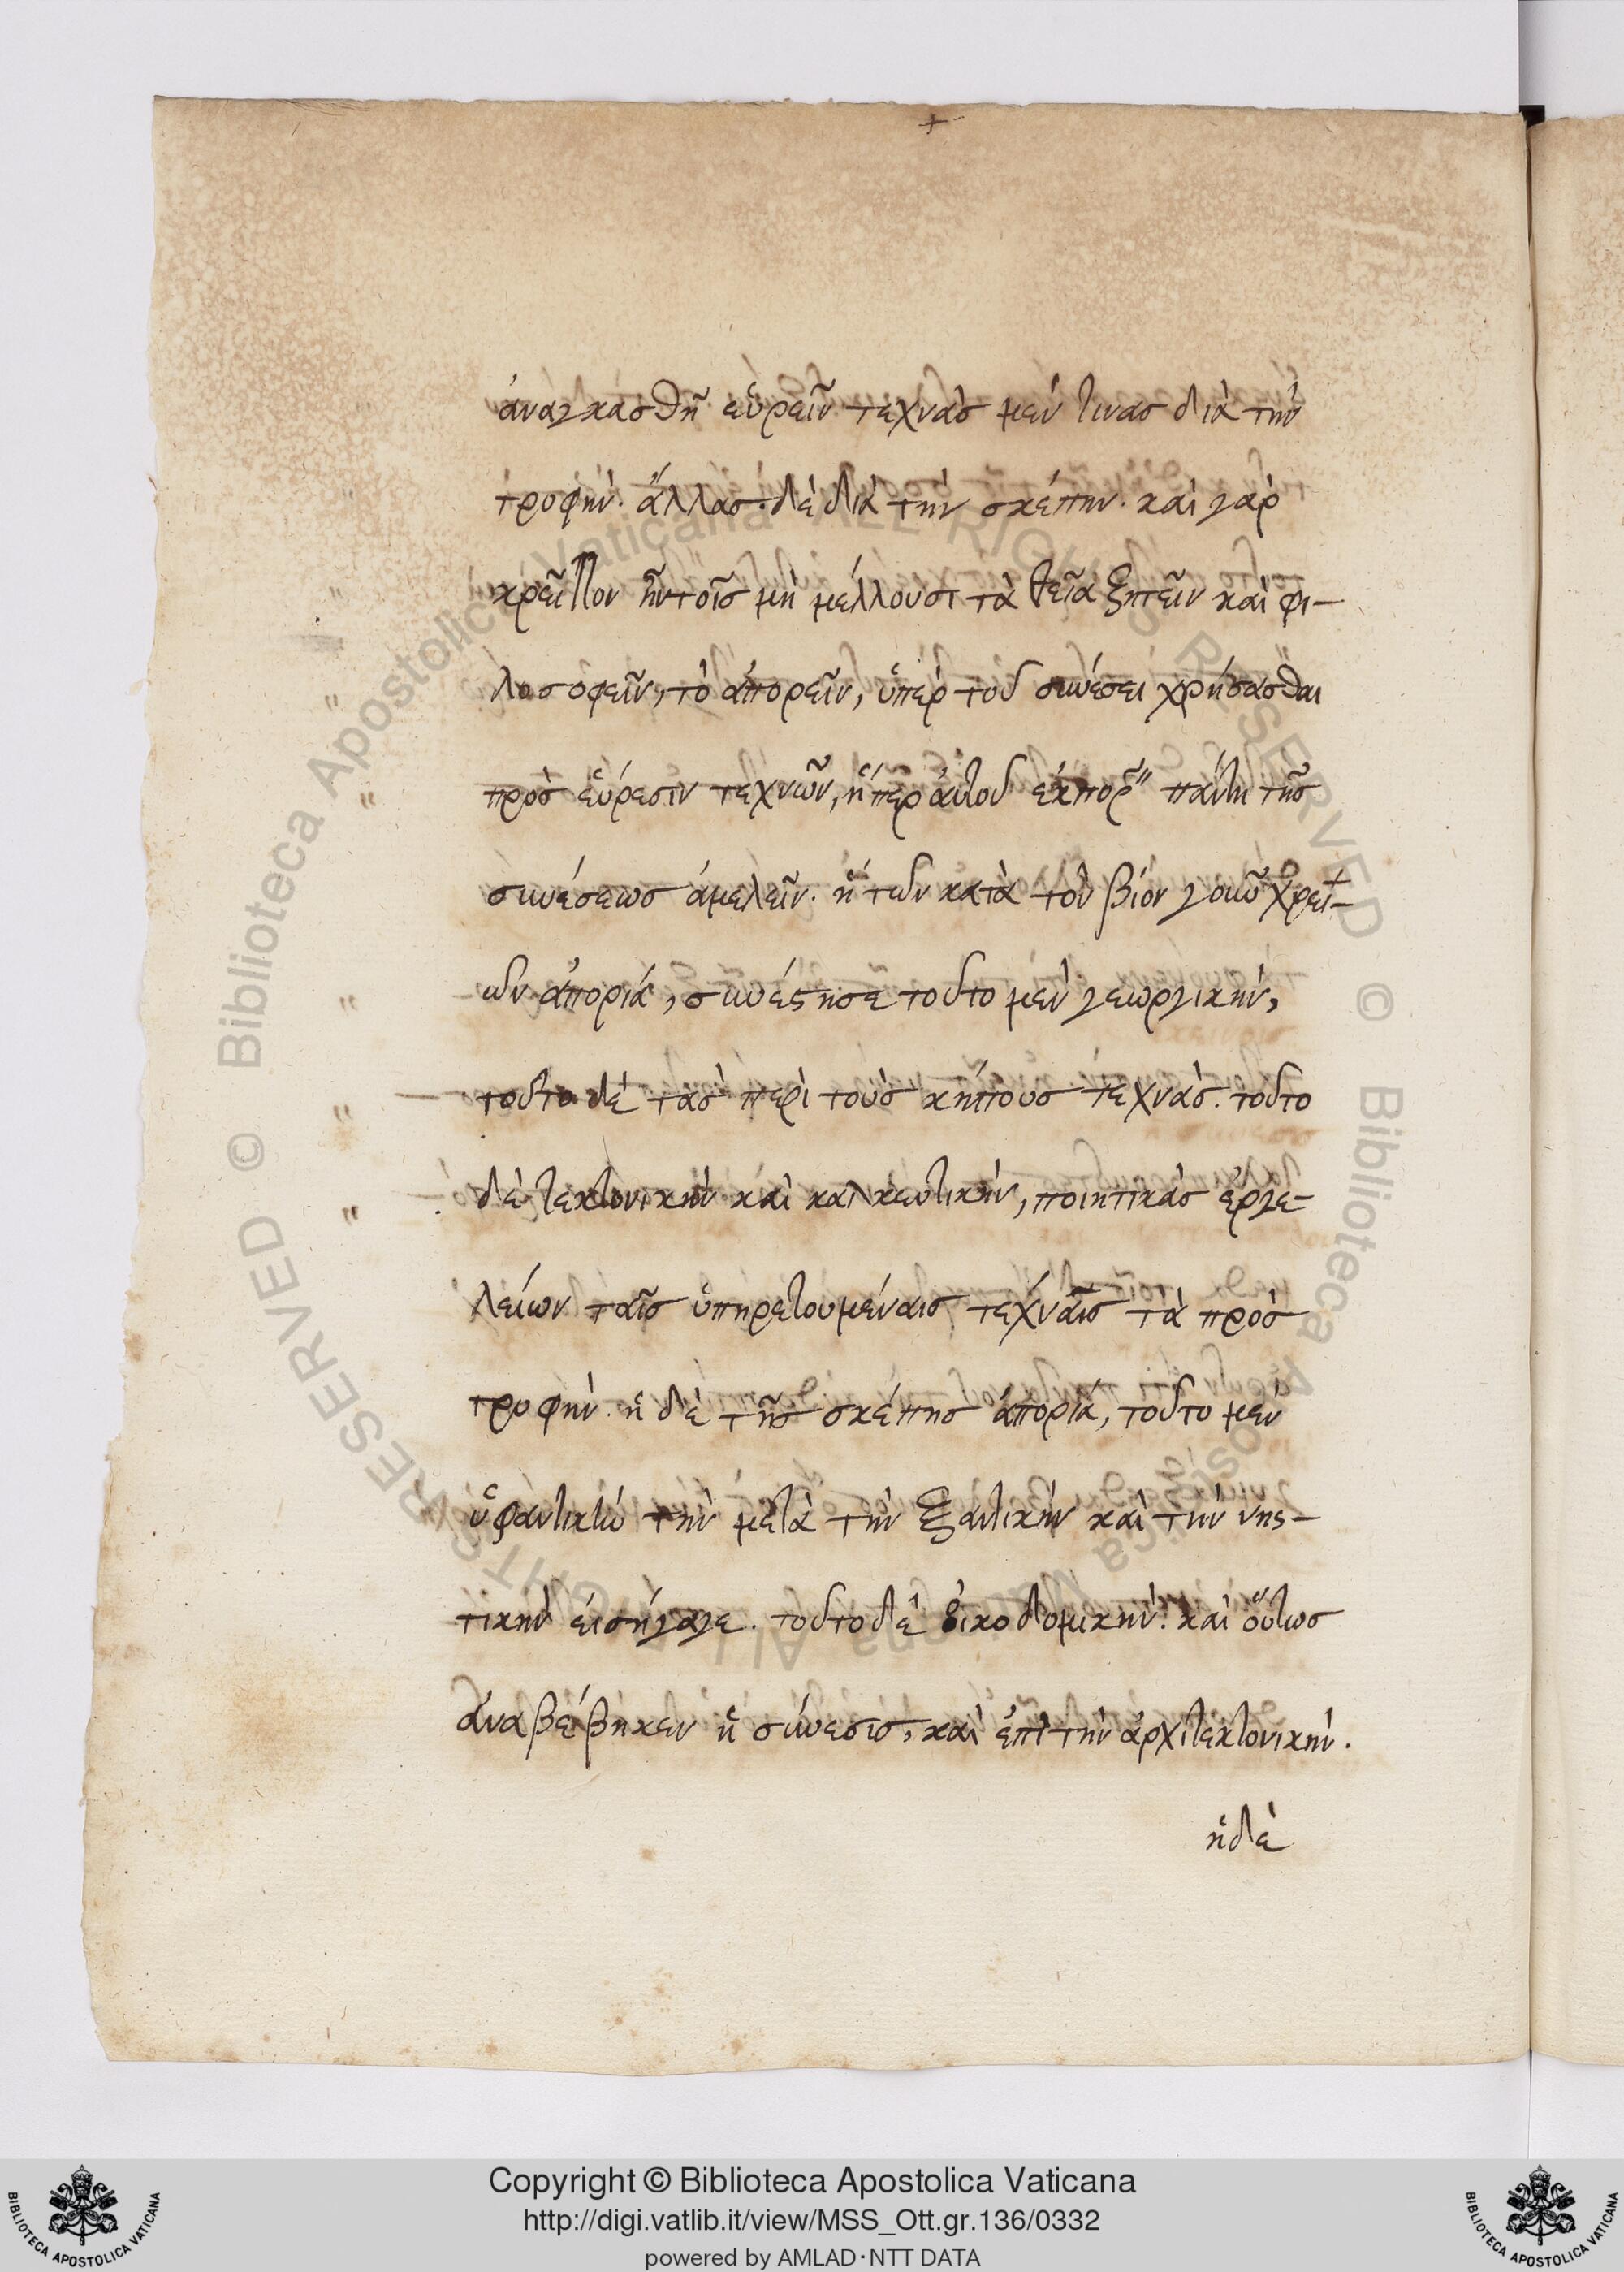 ἀναγκασθῆ εὑρεῖν τεχνὰσ μέν τινασ διὰ τὴν
τροφήν. ἄλλασ δὲ διὰ τὴν σκέπην. καὶ γὰρ
κρεῖττον ἦν τοῖσ μὴ μέλλουσι τὰ θεῖα ζητεῖν καὶ φι-
λοσοφεῖν, τὸ ἀπορεῖν, ὑπὲρ τοῦ συνέσει χρήσασθαι
πρὸσ εὕρεσιν τεχνῶν, ἥπερ πάντη τῆσ
συνέσεωσ ἀμελεῖν. ἡ τῶν κατὰ τὸν βίον γοῦν χρει-
ῶν ἀπορία, συνέστησε τοῦτο μὲν γεωργικήν,
τοῦτο δὲ τὰσ περὶ τοὺσ κήπουσ τεχνάσ. τοῦτο
δὲ τεκτονικὴν καὶ χαλκευτικήν, ποιητικάσ ἐργα-
λείων ταῖσ ὑπηρετουμέναισ τέχναισ τὰ πρὸσ
τροφήν. ἡ δὲ τῆσ σκέπησ ἀπορία, τοῦτο μὲν
ὑφαντικὴν τὴν μετὰ τὴν ξαντικὴν καὶ τὴν νησ-
τικὴν εἰσήγαγε. τοῦτο δὲ οἰκοδομικήν. καὶ οὕτωσ
ἀναβέβηκεν ἡ σύνεσισ, καὶ ἐπὶ τὴν ἀρχιτεκτονικήν.
ἡ δὲ
Copyright © Biblioteca Apostolica Vaticana
http://digi.vatlib.it/view/MSS_Ott.gr.136/0332
powered by AMLAD·NTT DATA
BIBLIOTECA APOSTOLICA VATICANA
BIBLIOTECA APOSTOLICA VATICANA
© Biblioteca Apostolica Vaticana ALL RIGHTS RESERVED
© Biblioteca Apostolica Vaticana ALL RIGHTS RESERVED